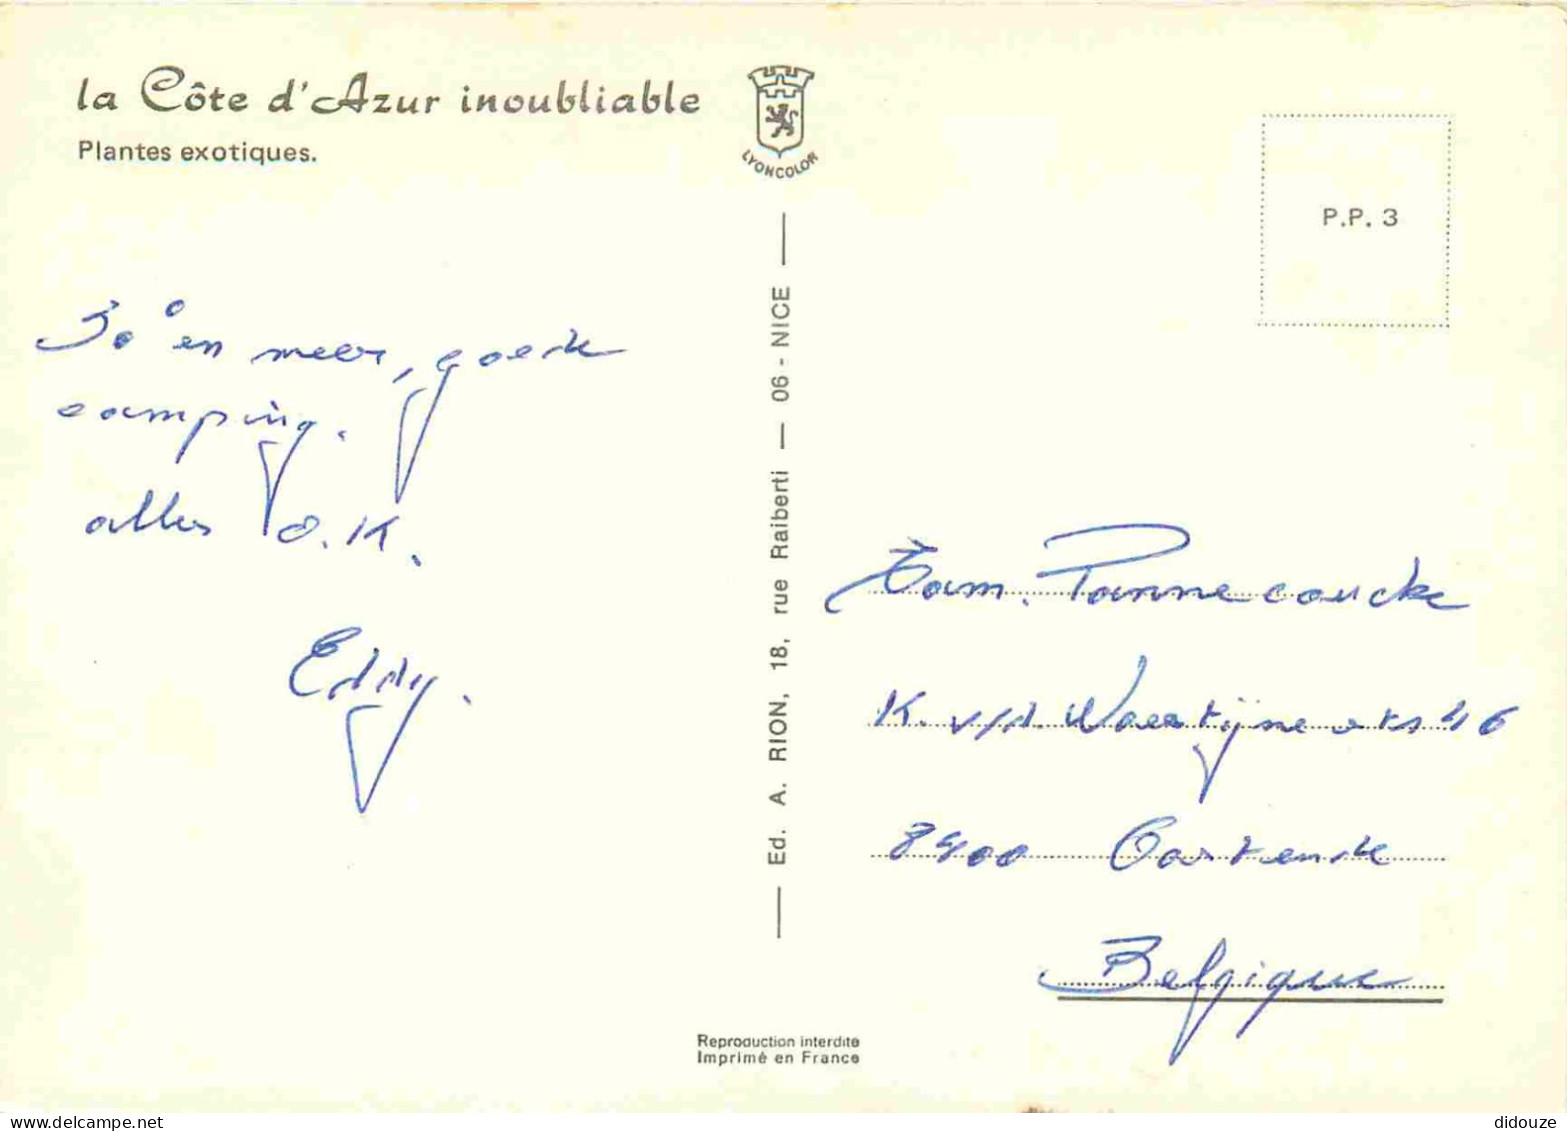 la Côte d'Azur inoubliable
Plantes exotiques.
LYONCOLOR
P.P. 3
30° en meer, goede
camping.
alles O.K.
Eddy.
Ed. A. RION, 18, rue Raiberti — 06 - NICE
Fam. Pannecoucke
K. v/d. 46
8400 Oostende
Belgique
Reproduction interdite
Imprimé en France
didouze
delcampe.net